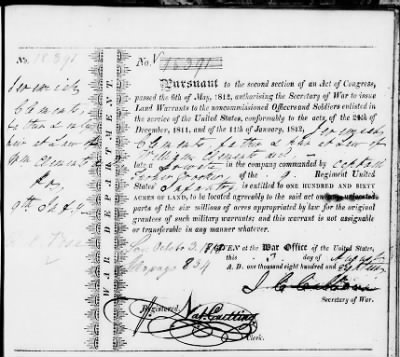 No. 18391
No. 18,391
Pursuant to the second section of an Act of Congress,
passed the 6th of May, 1812, authorising the Secretary of War to issue
Land Warrants to the noncommissioned Officers and Soldiers enlisted in
the service of the United States, conformably to the acts of the 24th of
December, 1811, and of the 11th of January, 1812, Jeremiah
Clements father & heir at Law of
William Clements
late a in the company commanded by Captain
of the 9. Regiment United
States' Infantry is entitled to ONE HUNDRED AND SIXTY
ACRES OF LAND, to be located agreeably to the said act on
parts of the six millions of acres appropriated by law for the original
grantees of such military warrants; and this warrant is not assignable
or transferable in any manner whatever.
GIVEN at the War Office of the United States,
this day of
A. D. one thousand eight hundred and
J. C. Calhoun
Secretary of War.
Registered,
Clerk.
WAR DEPARTMENT.
Jeremiah
Clements,
father &
heir at Law of
Wm Clements
9th Inf.y
Octob. 3. 1818
834